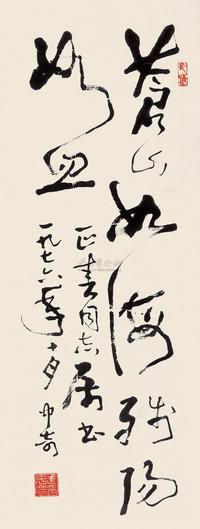 苍山如海残阳
如血
正春同志属书
一九七六年十月 中奇